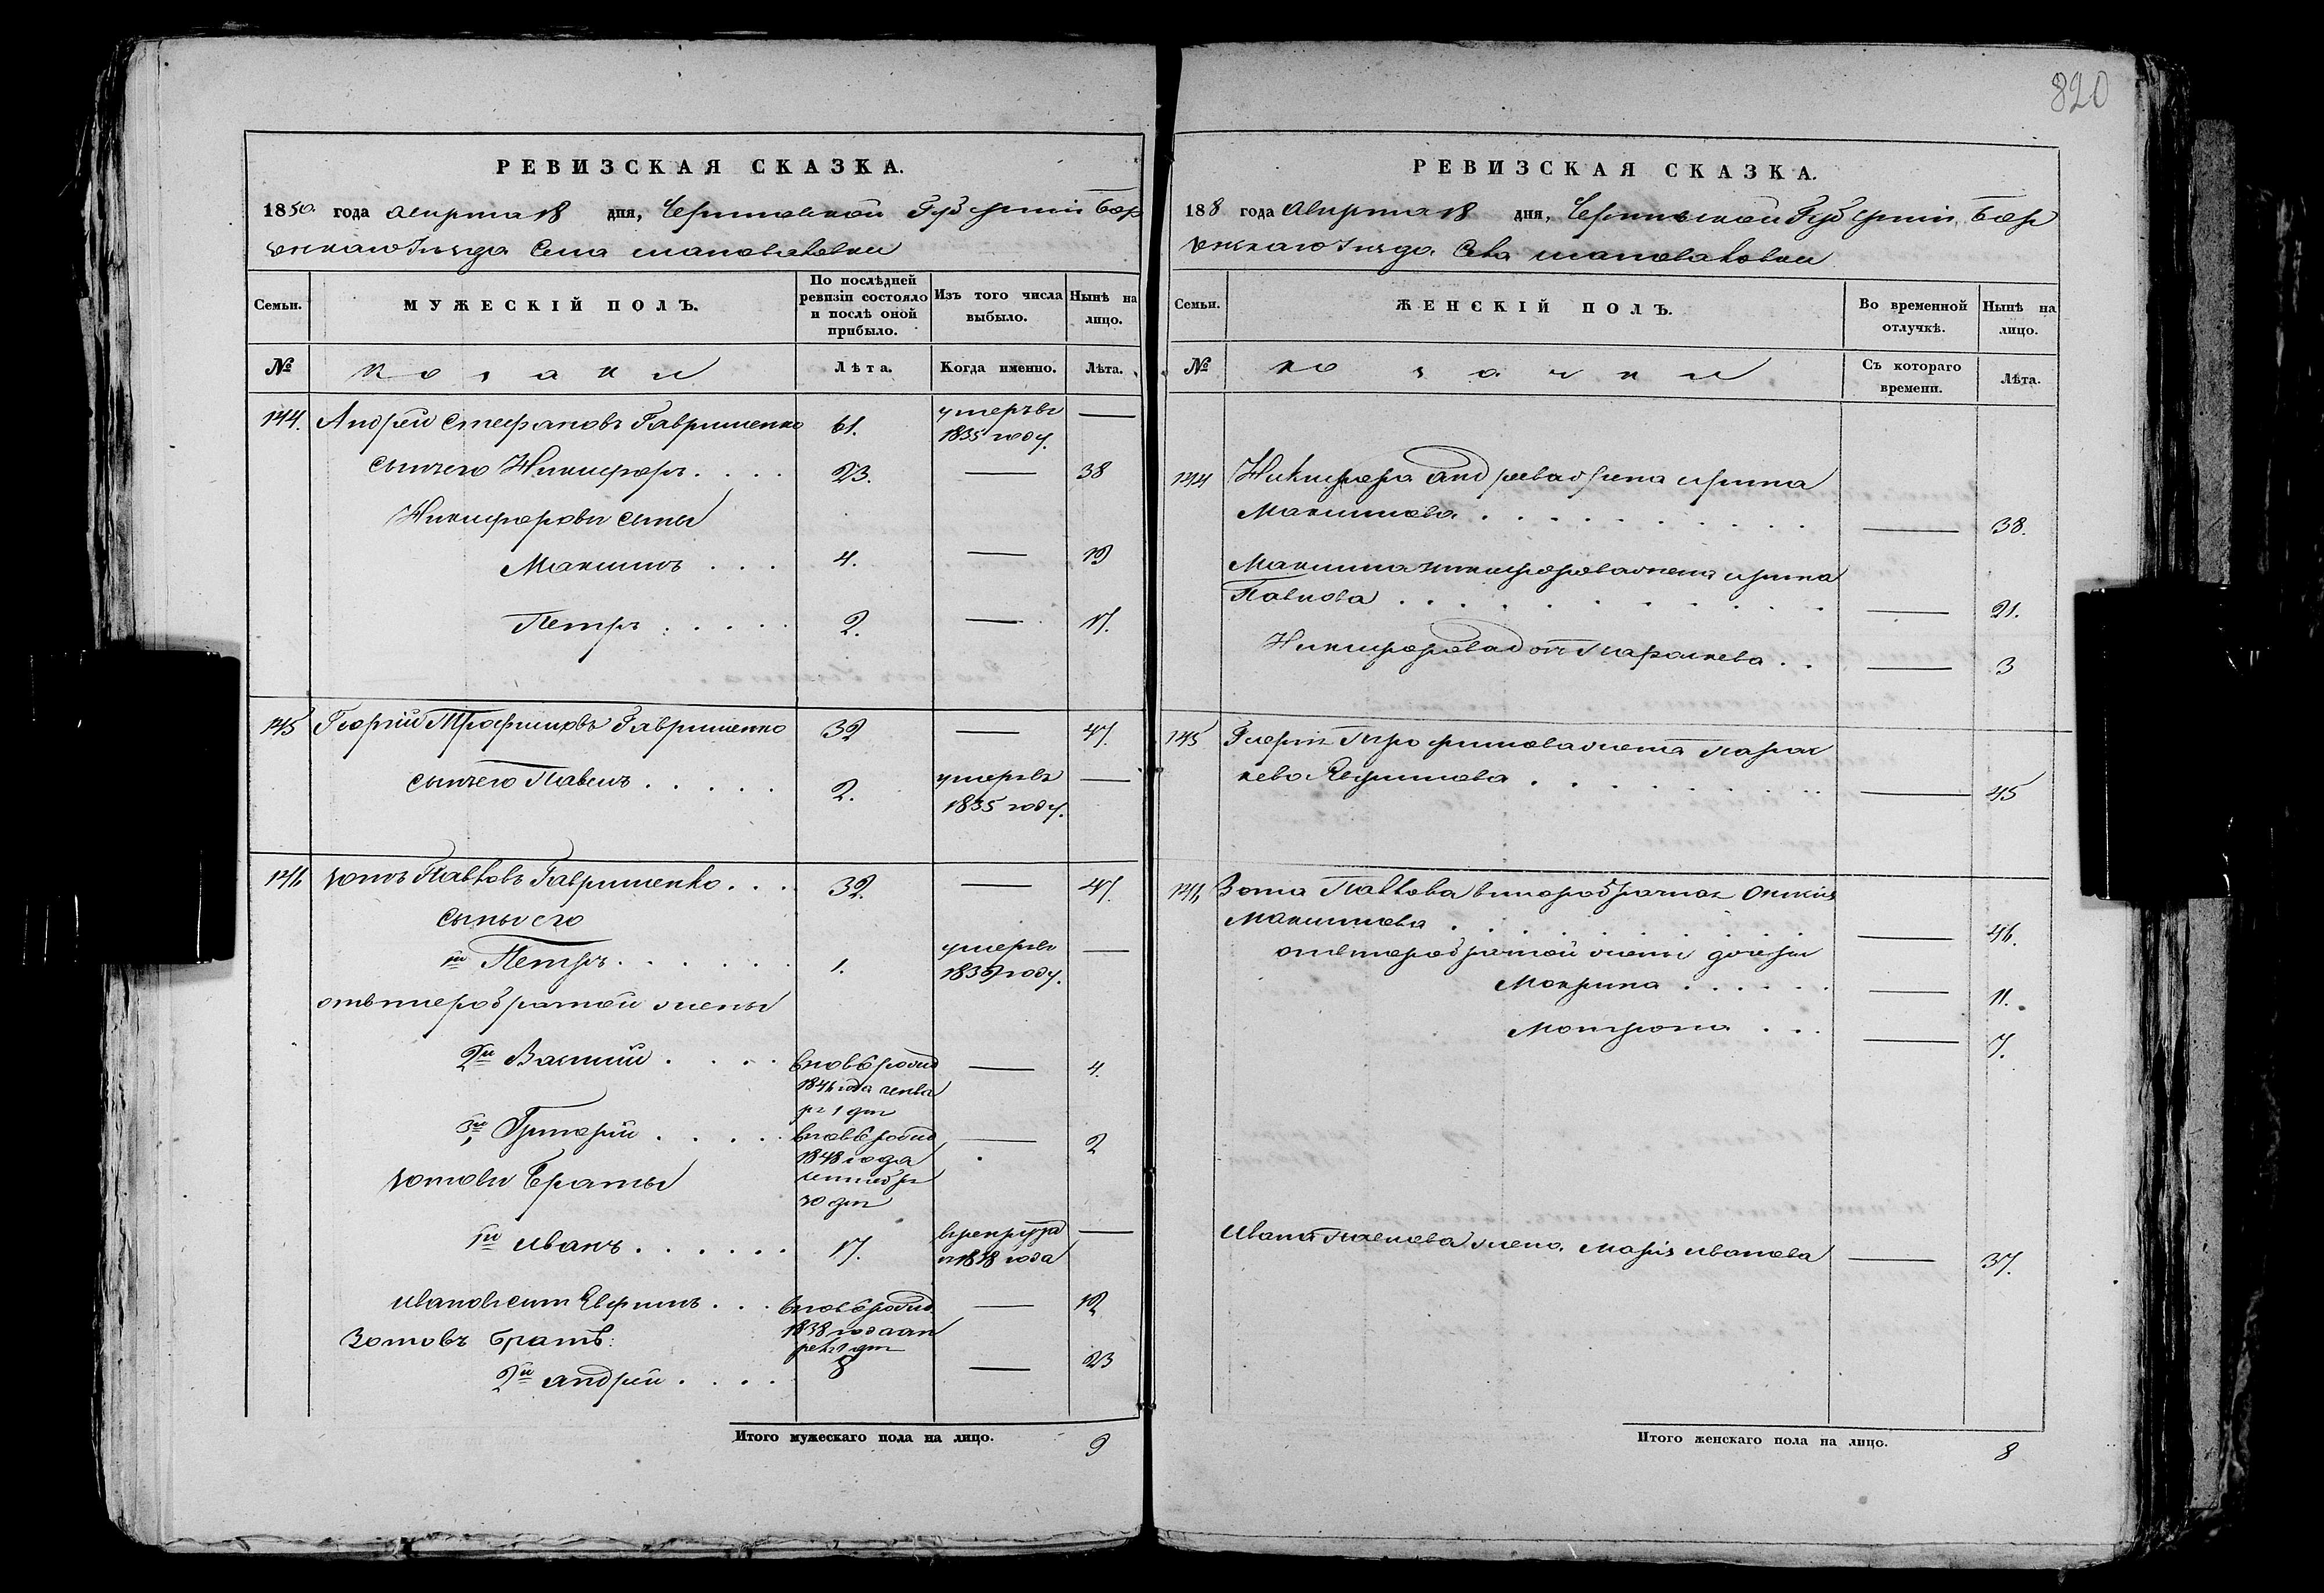 820
РЕВИЗСКАЯ СКАЗКА.
1850 года августа 18 дня, Черниговской Губернии Бор
зенского уезда Села Шаповаловки
Семьи.
МУЖЕСКІЙ ПОЛЪ.
По послѣдней ревизіи состояло и послѣ оной прибыло.
Изъ того числа выбыло.
Нынѣ на лицо.
№
козаки
Лѣта.
Когда именно.
Лѣта.
144. Андрей Стефановъ Гавришенко 61. умеръ в 1835 году. —
сынъ его Никифоръ 23. — 38
Никифоровы сыны
Максимъ 4. — 19
Петръ 2. — 17.
145 Георгій Трофимовъ Гавришенко 32 — 47.
сынъ его Павелъ 2. умеръ в 1835 году. —
146 Зотъ Павловъ Гавришенко 32. — 47.
сыны его
1й Петръ 1. умеръ в 1839 году. —
отъ второбрачной жены
2й Василий вновь рожд 1846 года генва ря 1 дня — 4.
3й Григорій вновь рожд 1848 года сентября 30 дня — 2
Зотовы Браты
1й Иванъ 17. в рекруты 1838 года —
Ивановъ сынъ Евфимъ вновь рожд. 1838 года ап реля 1 дня — 12
Зотовъ братъ:
2й Андрей 8 — 23
Итого мужескаго пола на лицо. 9
РЕВИЗСКАЯ СКАЗКА.
188 года августа 18 дня, Черниговской Губернии, Бор
зенского уезда. Села Шаповаловки
Семьи.
ЖЕНСКІЙ ПОЛЪ.
Во временной отлучкѣ.
Нынѣ на лицо.
№
козачки
Съ котораго времени.
Лѣта.
144 Никифора Андреева жена Ирина
Максимова — 38.
Максима Никифорова жена Ирина
Павлова — 21.
Никифорова дочь Параскева — 3
145 Георгія Трофимова жена Парас
кева Евфимова — 45
146 Зота Павлова второбрачная
Максимова — 46.
от второбрачной жены дочери
Макрина — 11.
Матрона — 7.
Ивана Павлова жена. Марія Иванова — 37.
Итого женскаго пола на лицо. 8